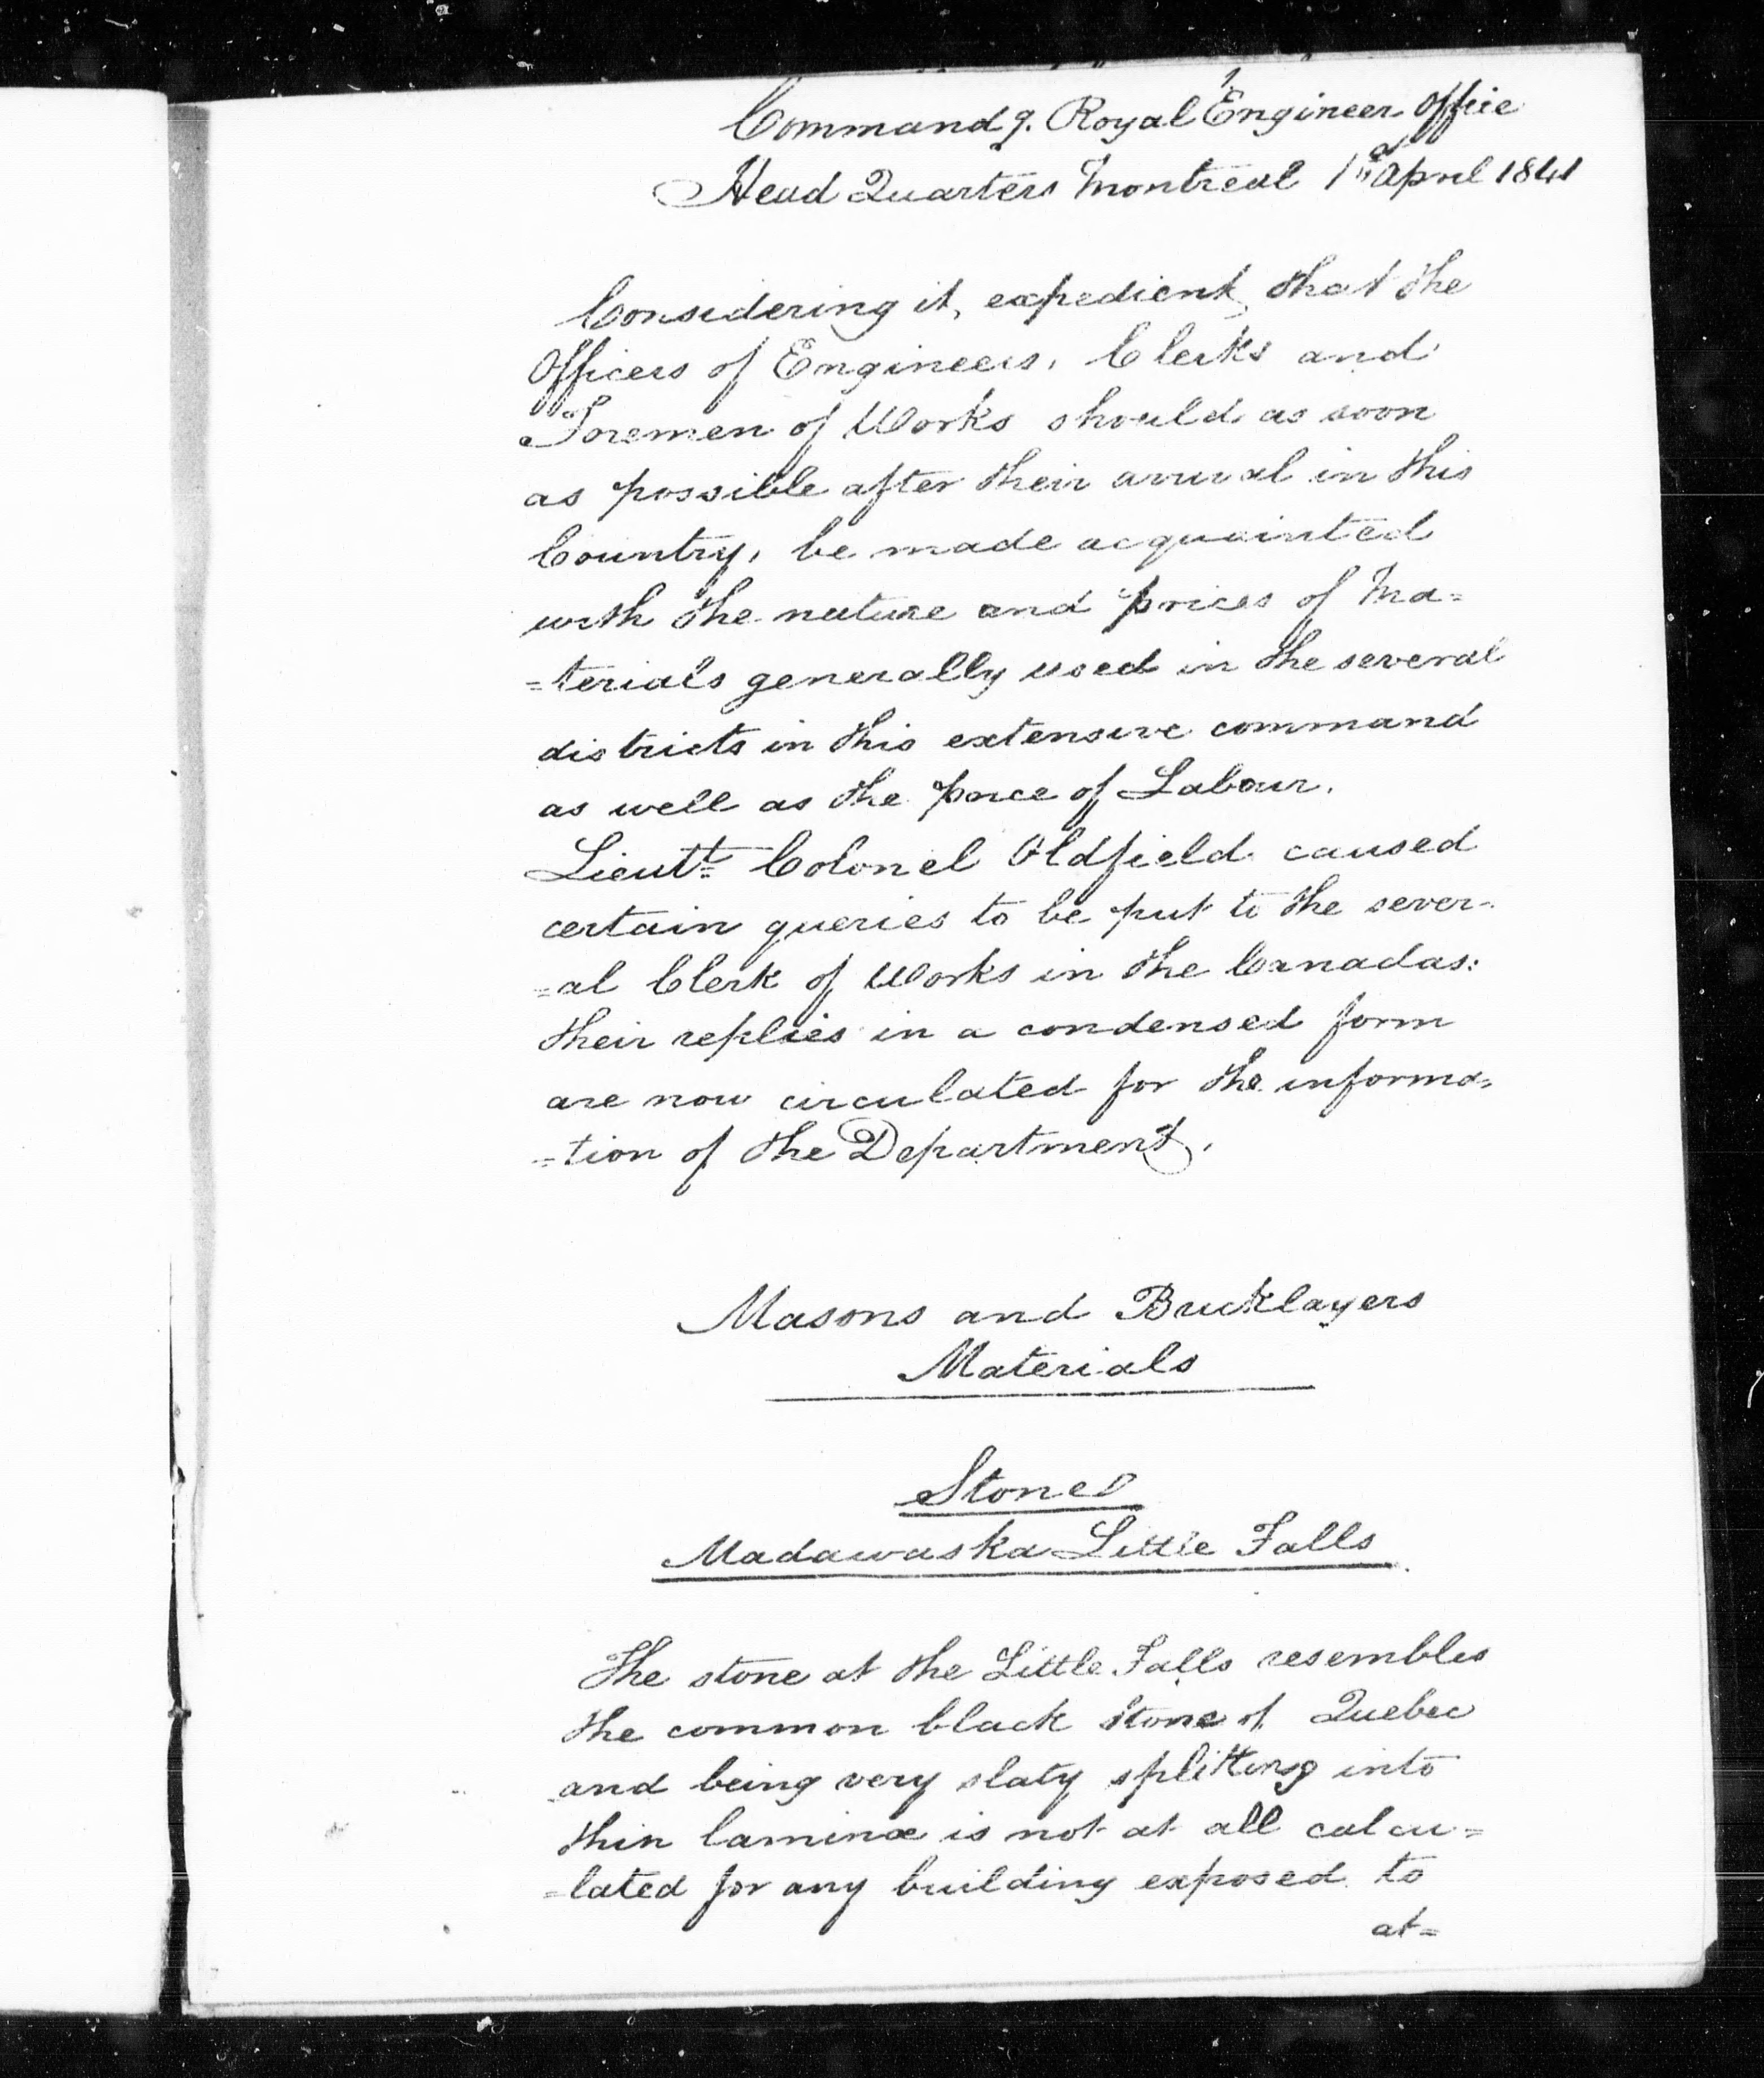 1
Command.g. Royal Engineer Office
Head Quarters Montreal 1st April 1841
Considering it, expedient, that the
Officers of Engineers, Clerks and
Foremen of Works should as soon
as possible after their arrival in this
Country, be made acquainted
with the nature and prices of Ma=
=terials generally used in the several
districts in this extensive command
as well as the price of Labour.
Lieutt. Colonel Oldfield caused
certain queries to be put to the sever-
=al Clerk of Works in the Canadas:
their replies in a condensed form
are now circulated for the informa=
=tion of the Department.
Masons and Bricklayers
Materials
Stone
Madawaska Little Falls.
The stone at the Little Falls resembles
the common black stone of Quebec
and being very slaty splitting into
thin laminæ is not at all calcu=
=lated for any building exposed to
at=